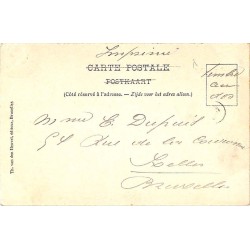 Imprimé
CARTE POSTALE
POSTKAART
(Côté réservé à l'adresse. — Zijde voor het adres alleen.)
Timbre
au
dos
Mme E. Dupuis
54 Rue de la Couronne
Ixelles
Bruxelles
Th. van den Heuvel, éditeur, Bruxelles